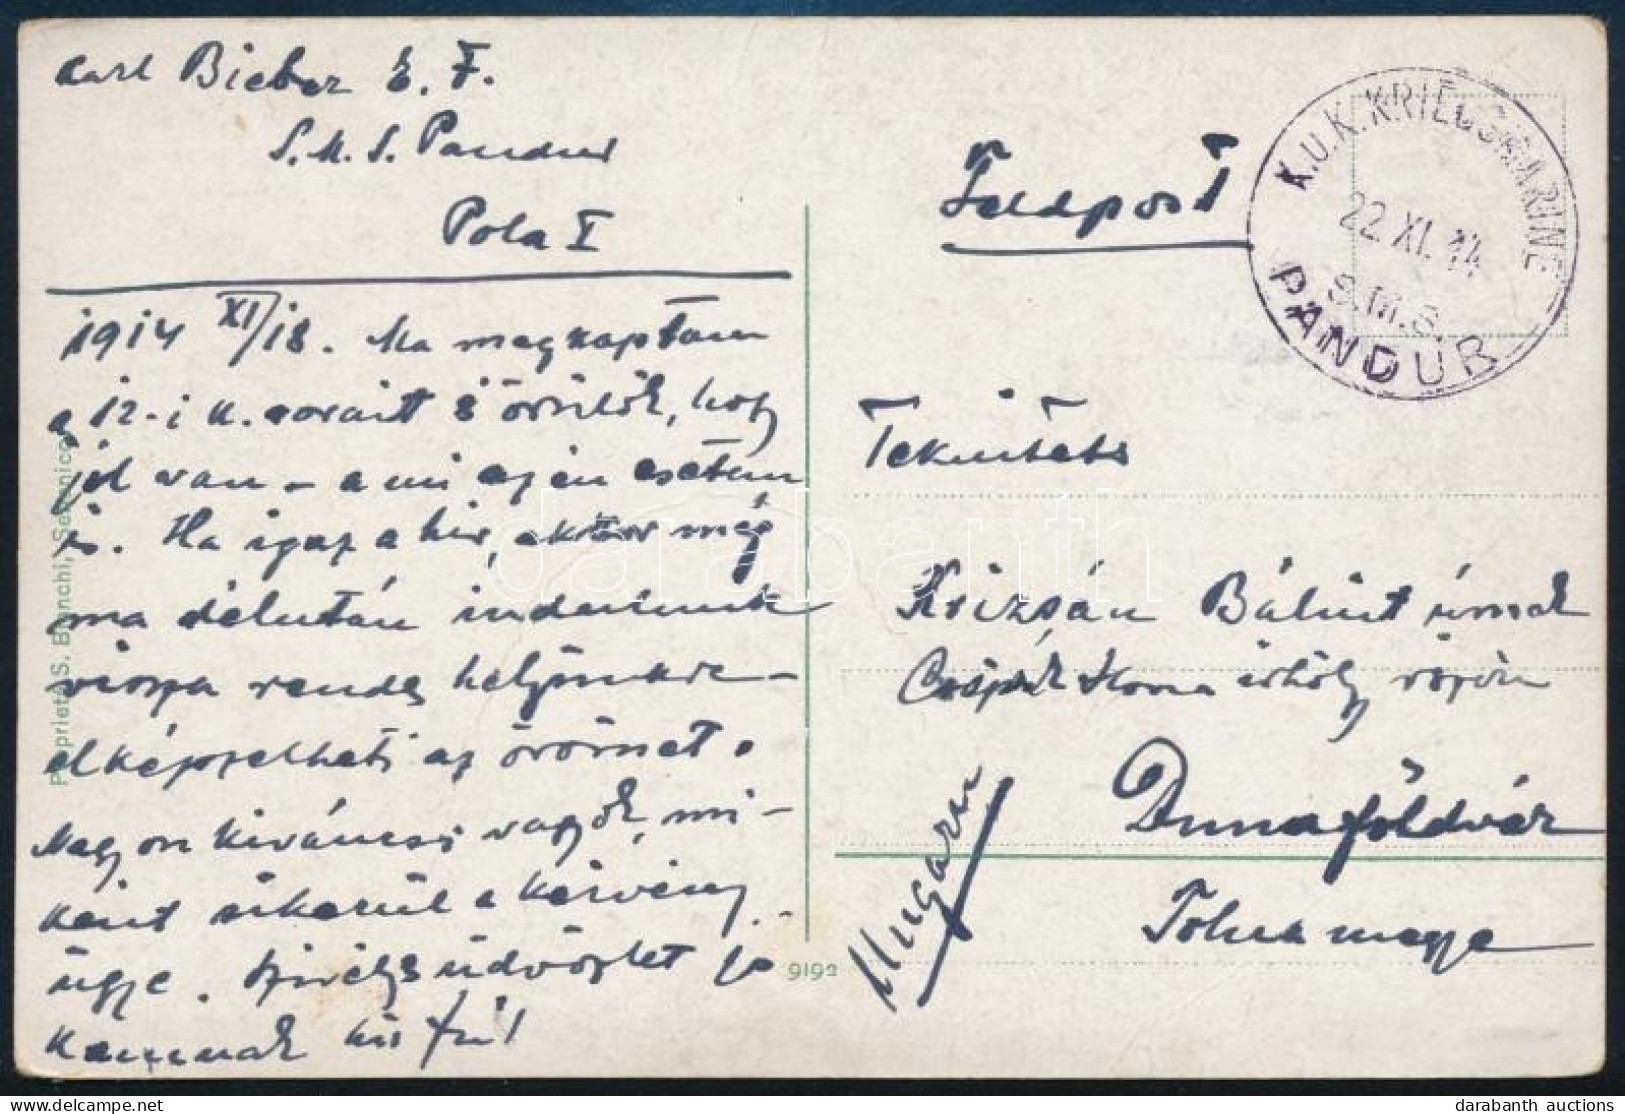 Carl Bieber E. F.
S. M. S. Pandur
Pola I
1914 XI/18. Ma megkaptam
a 12-i k. sorait s örülök, hogy
jól van – a mi az én esetem
is. Ha igaz a hir, akkor még
ma délután indulunk
vissza rendes helyünkre –
elképzelheti az örömet.
Nagyon kiváncsi vagyok, mi-
ként sikerül a kérvény
ügye. Szivélyes üdvözlet
kis fiú!
Propriet. S. Bianchi, Sebenico
9192
Feldpost
K.U.K. KRIEGSMARINE
22.XI.14
S.M.S.
PANDUR
Tekintetes
Krizsán Bálint úrnak
Ilona
Dunaföldvár
Tolna megye
Ungarn
darabanth
darabanth auctions